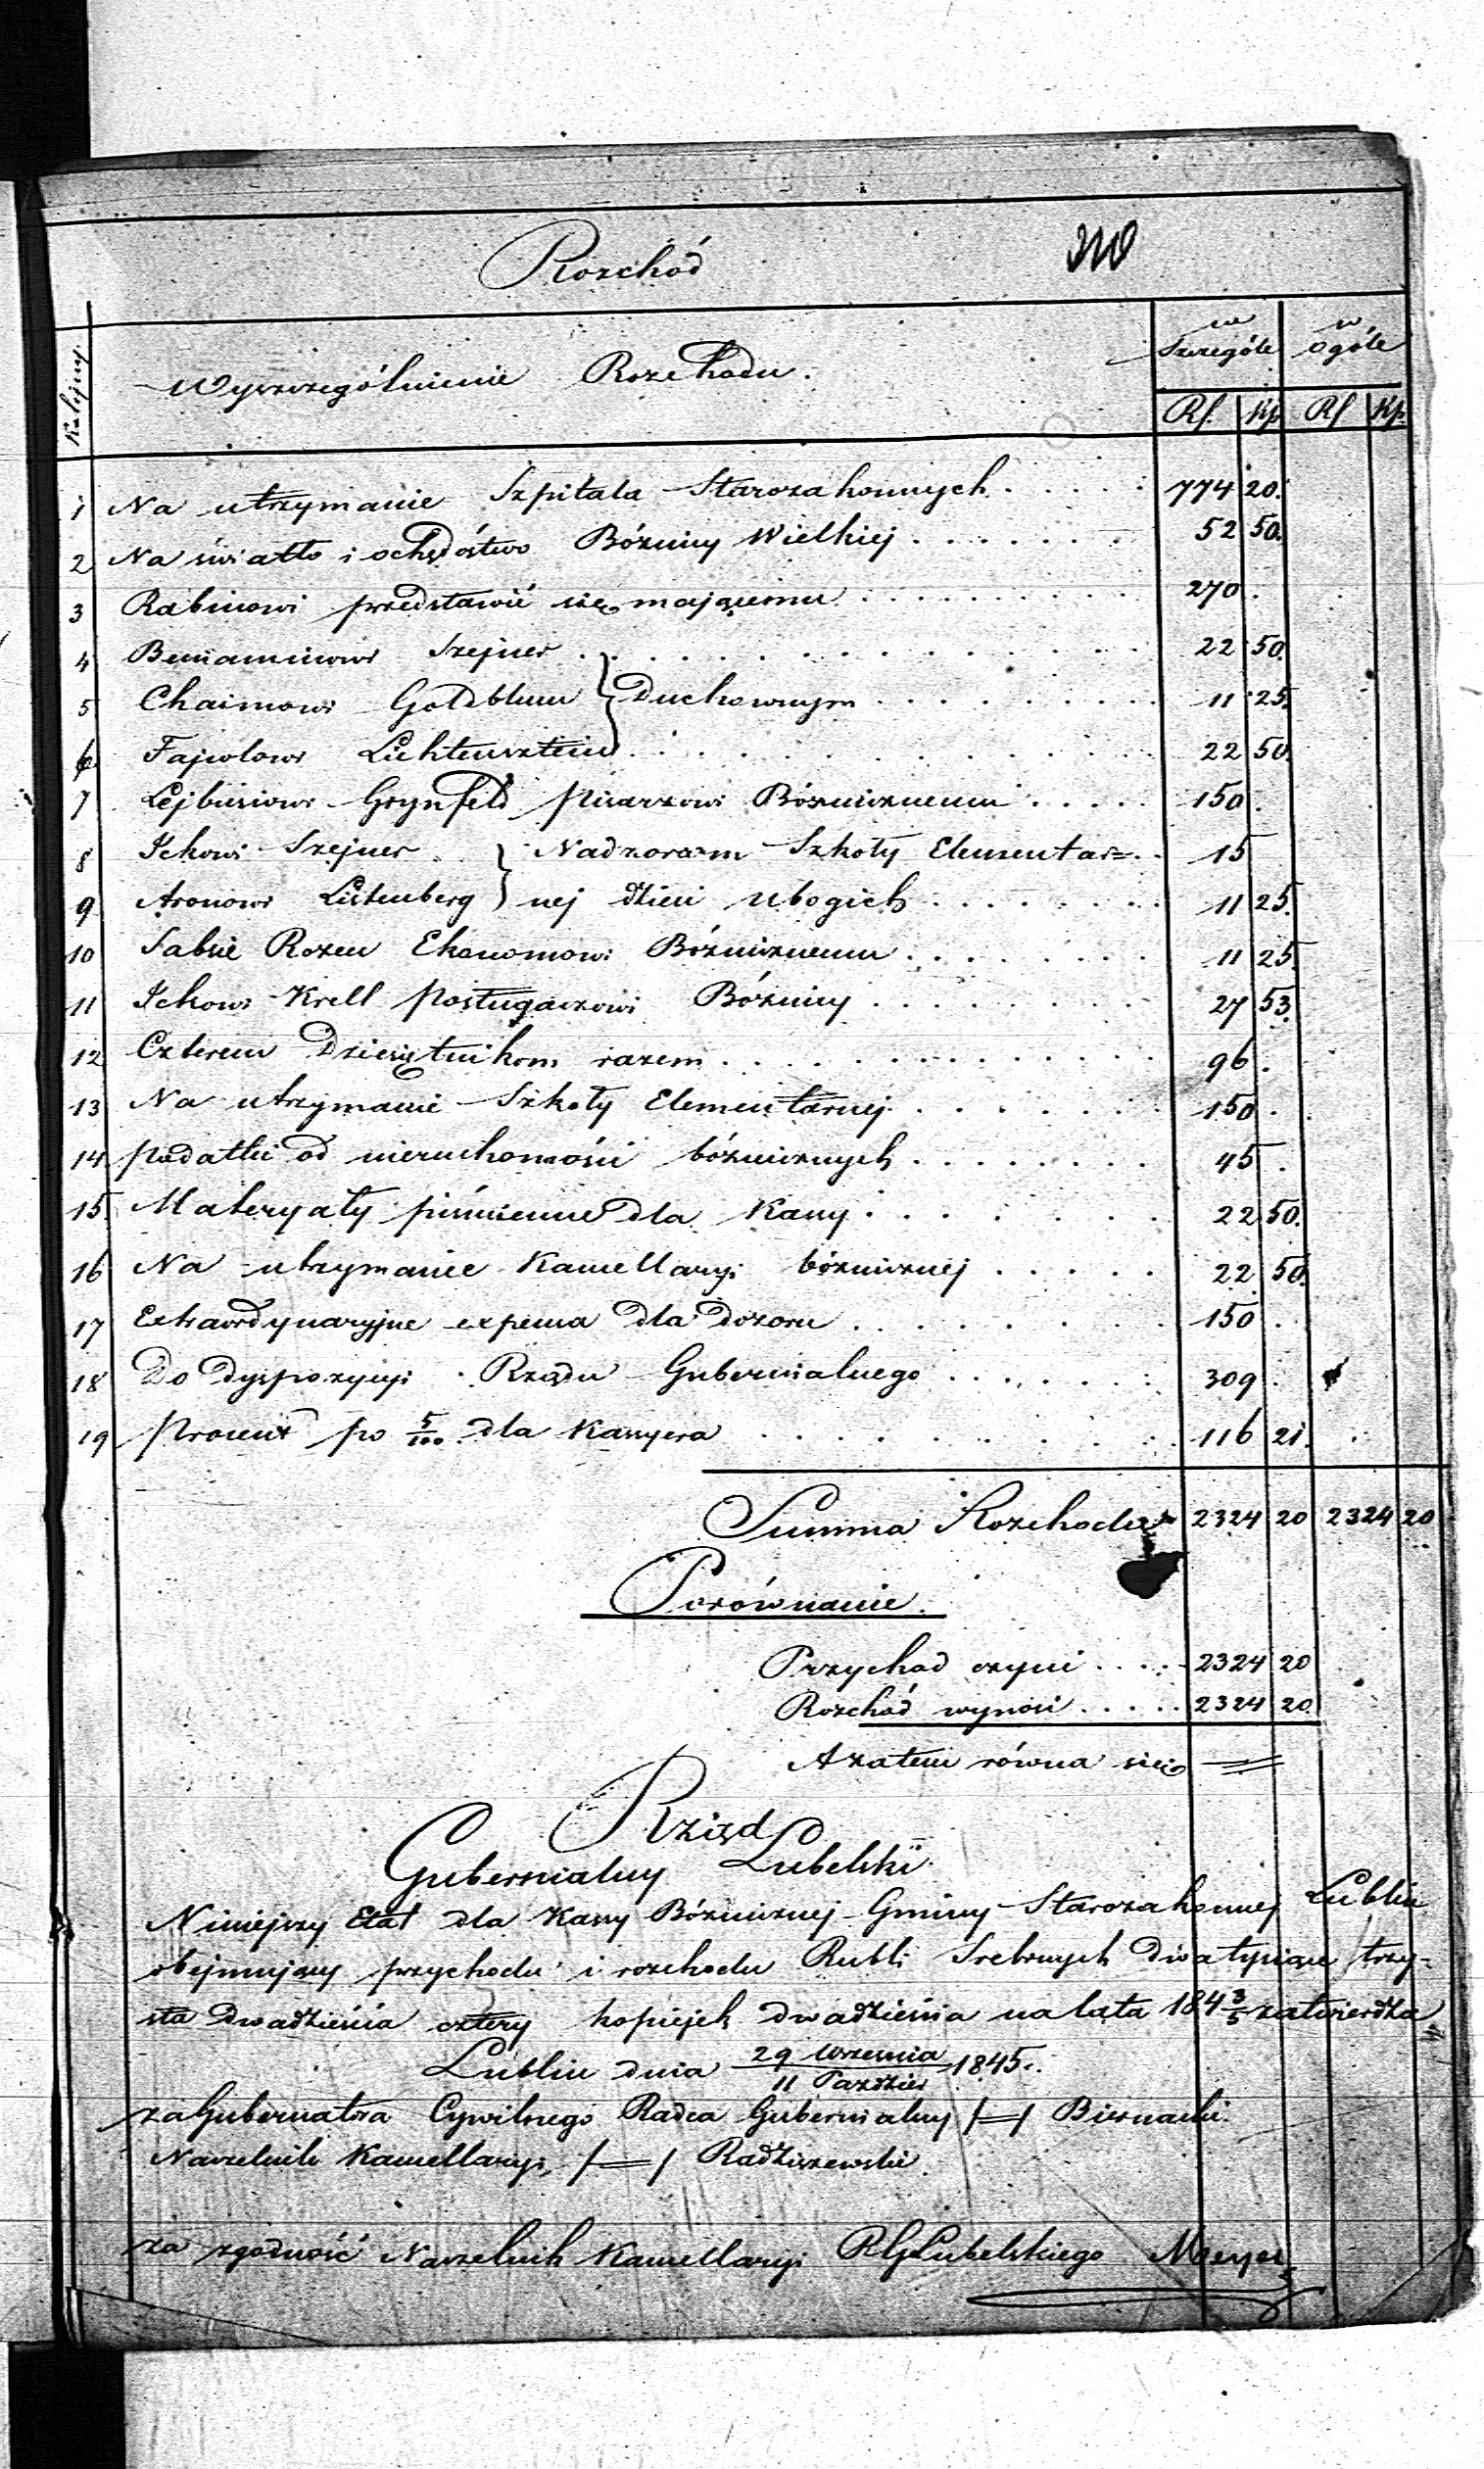 Rozchód
Wyszczególnienie Rozchodu.
w Szczególe
w ogóle
Rs. Kp Rs Kp.
1 Na utrzymanie Szpitala Starozakonnych . . . . . 774 20.
2 Na światło i ochędóstwo Bóżnicy Wielkiej . . . . . . . 52 50.
3 Rabinowi przedstawić się mającemu . . . . . . . . . . 270 .
4 Beniaminowi Szejner . . . . . . . . . . . . . 22 50.
5 Chaimowi Goldblum } Duchownym . . . . . . . . . 11 25.
6 Fajwlowi Lichtensztein . . . . . . . . . . . . 22 50.
7 Lejbusiowi Grynfeld Pisarzowi Bóżnicznemu . . . . . 150 .
8 Ickowi Szejner } Nadzorcom Szkoły Elementar= . . 15
9 Aronowi Lichtenberg } nej dzieci ubogich . . . . . . . . 11 25.
10 Sabsie Rozen Ekonomowi Bóżnicznemu . . . . . . . 11 25.
11 Ickowi Krell Posługaczowi Bóżnicy . . . . . . . . 27 53.
12 Czterem Dziesiętnikom razem . . . . . . . . . . . 96 .
13 Na utrzymanie Szkoły Elementarnej . . . . . . . 150 .
14 Podatki od nieruchomości bóżnicznych . . . . . . . . 45 .
15. Materyały piśmienne dla Kassy . . . . . . . . 22 50.
16 Na utrzymanie Kancellaryi bóżnicznej . . . . . 22 50.
17 Extraordynaryjne expensa dla Dozoru . . . . . . . . 150 .
18 Do dyspozycyi Rządu Gubernialnego . . . . . . . 309 .
19 Procent po 5/100 dla Kassyera . . . . . . . . . . . 116 21.
Summa Rozchodu 2324 20 2324 20
Porównanie.
Przychod czyni . . . . 2324 20
Rozchód wynosi . . . . . 2324 20
A zatem równa się =
Rząd
Gubernialny Lubelski.
Niniejszy Etat dla Kassy Bóżnicznej Gminy Starozakonnej Lublin
obejmujący przychodu i rozchodu Rubli Srebrnych Dwa tysiące trzy=
sta Dwadzieścia cztery kopiejek dwadzieścia na lata 184 3/5 zatwierdza=
Lublin dnia 29 Września / 11 Paździer 1845.
za Gubernatora Cywilnego Radca Gubernialny /=/ Biernacki.
Naczelnik Kancellaryi /=/ Radziszewski.
za zgodność Naczelnik Kancellaryi RGLubelskiego Meyer